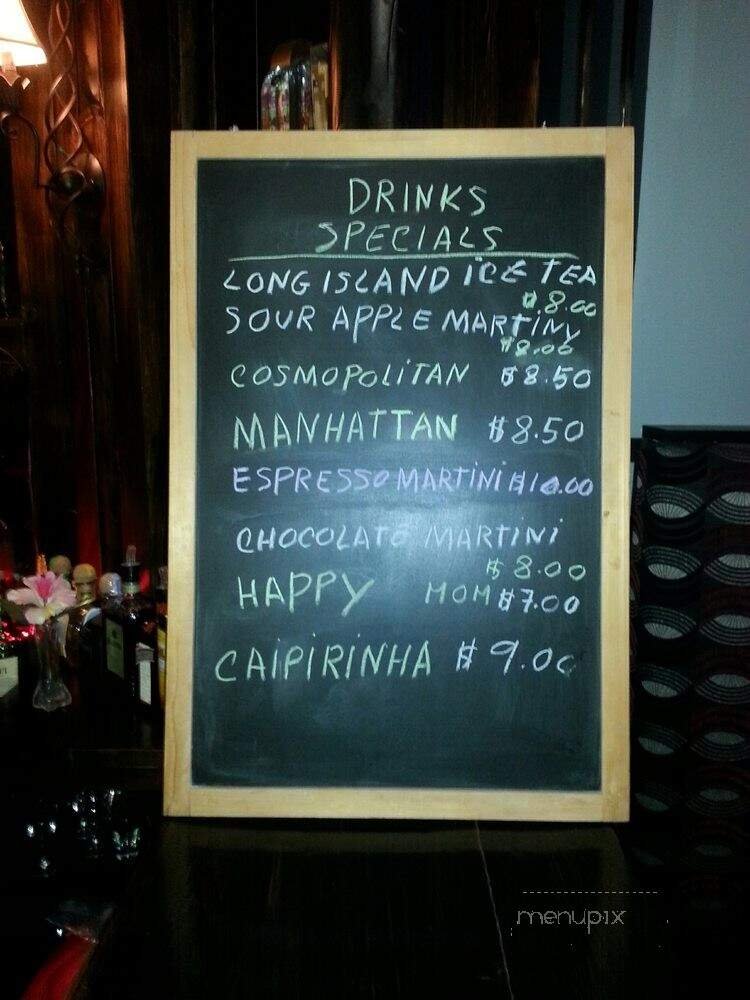 DRINKS
SPECIALS
LONG ISLAND ICE TEA
$8.00
SOUR APPLE MARTINY
$8.00
COSMOPOLITAN $8.50
MANHATTAN $8.50
ESPRESSO MARTINI $10.00
CHOCOLATE MARTINI
$8.00
HAPPY MOM $7.00
CAIPIRINHA $9.00
menupix